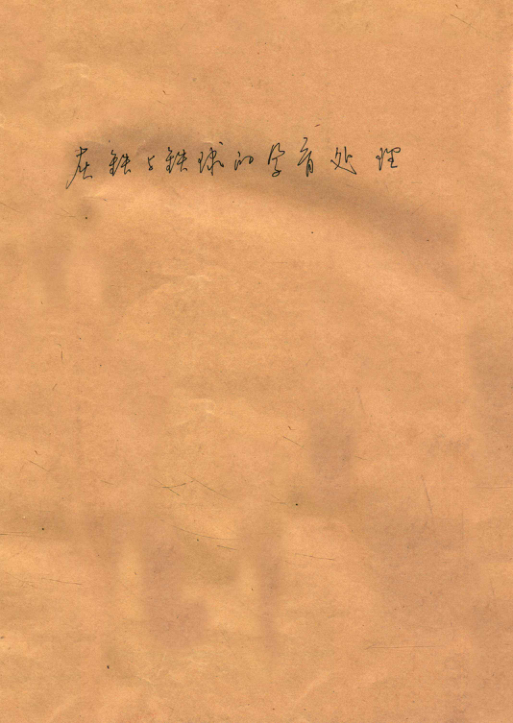 在铁与铁球的孕育处理